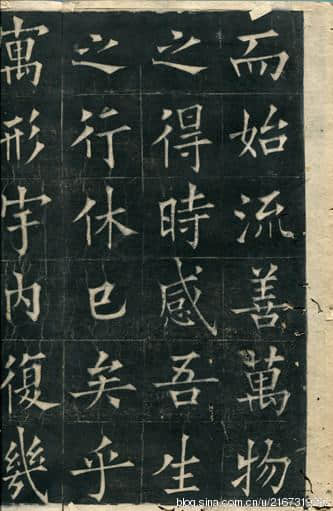 而始流善萬物
之得時感吾生
之行休已矣乎
寓形宇内復幾
blog.sina.com.cn/u/2167319